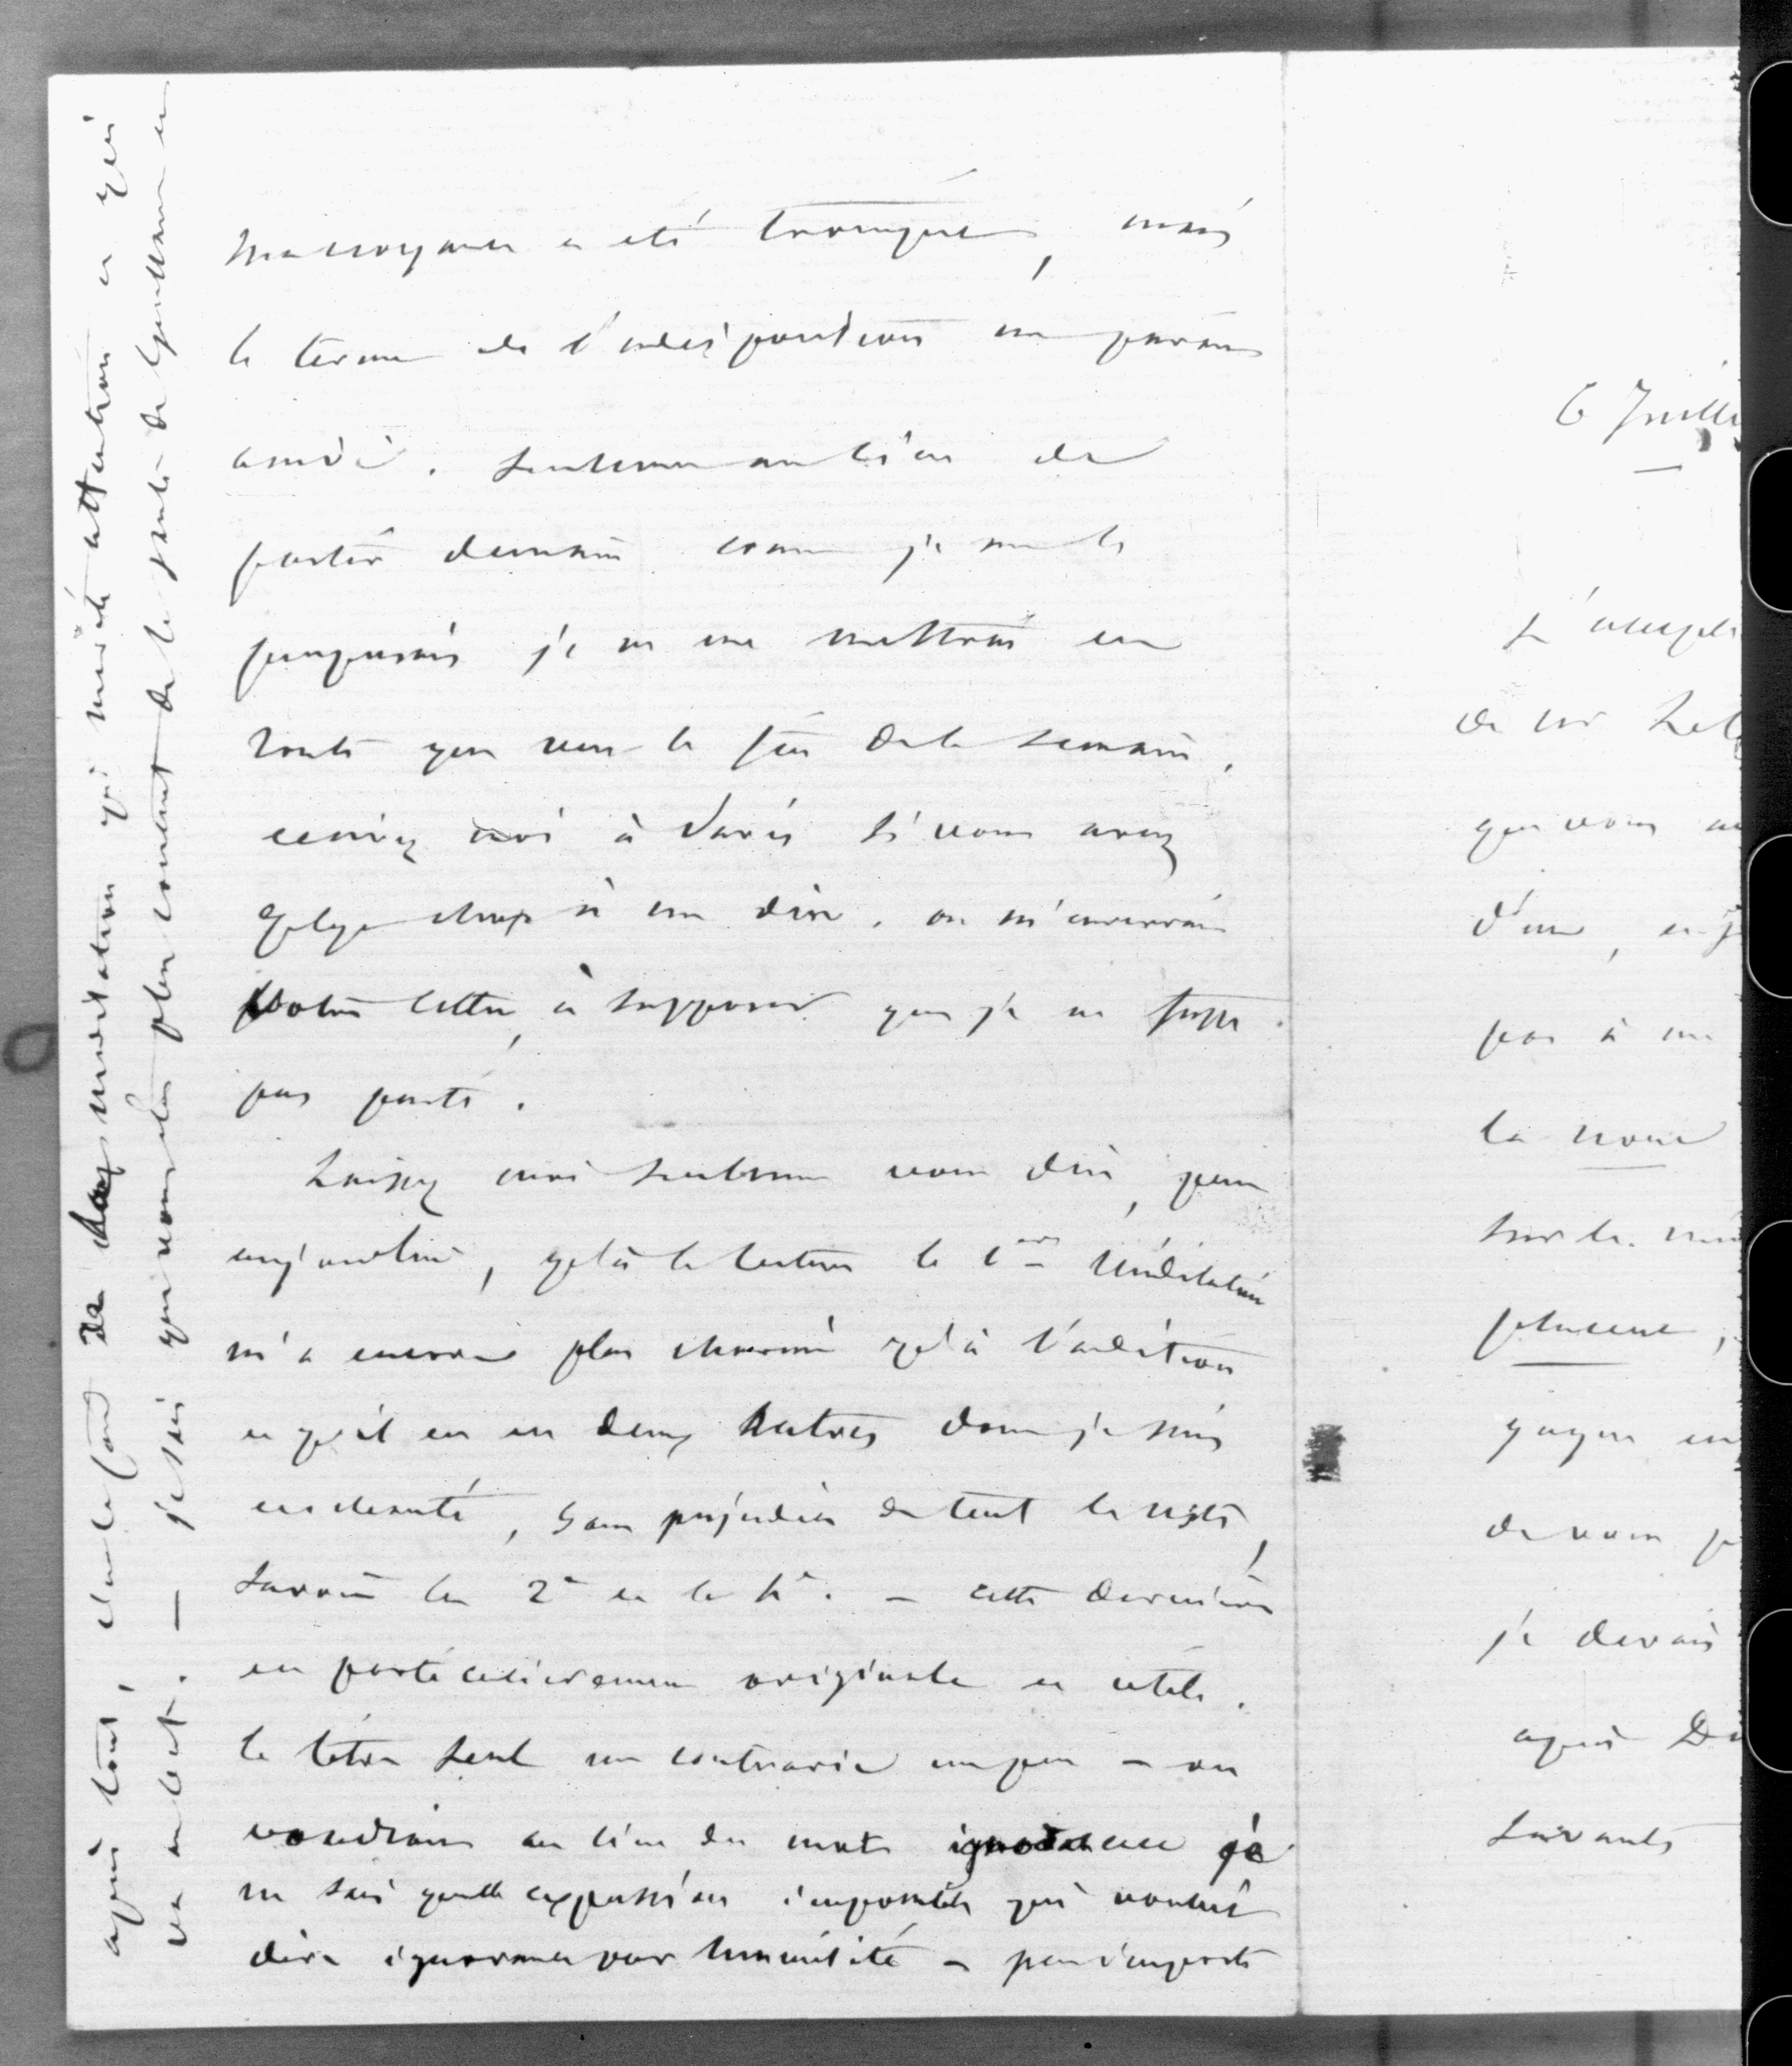 ma croyance a été trompée, mais
le terme de l'indisposition me paraît
arrivé. Seulement au lieu de
partir demain comme je me le
proposais je ne me mettrai en
route que vers la fin de la semaine.
écrivez moi à Paris si vous avez
quelque chose à me dire. on m'enverrait
votre lettre, à supposer que je ne fusse
pas parti.
Laissez moi seulement vous dire, pour
aujourd'hui, qu'à la lecture la 1ère méditation
m'a encore plus charmé qu'à l'audition
et qu'il en est deux autres dont je suis
enchanté, sans préjudice de tout le reste,
savoir la 2e et la 4e. — cette dernière
est particulièrement originale et utile.
le titre seul me contrarie un peu — on
voudrait au lieu du mot ignorance je
ne sais quelle expression impossible qui voulût
dire ignorance par humilité — peu importe
après tout, c'est le fond de la méditation qui mérite attention et qui
va au but. — je sais que vous êtes plein
6 Juille
de vos Let
que vous
d'une, et
pas à
la nou
sur la
de vous
je devais
après D
suivants